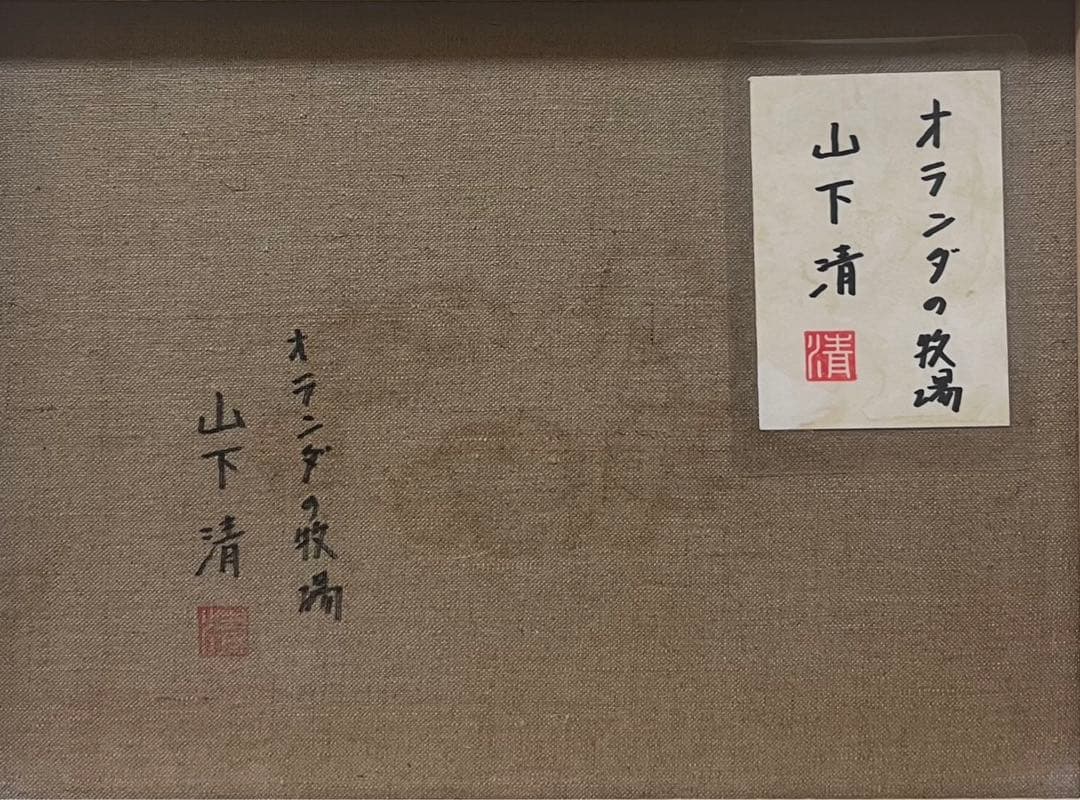 オランダの牧場
山下清
清
オランダの牧場
山下清
清